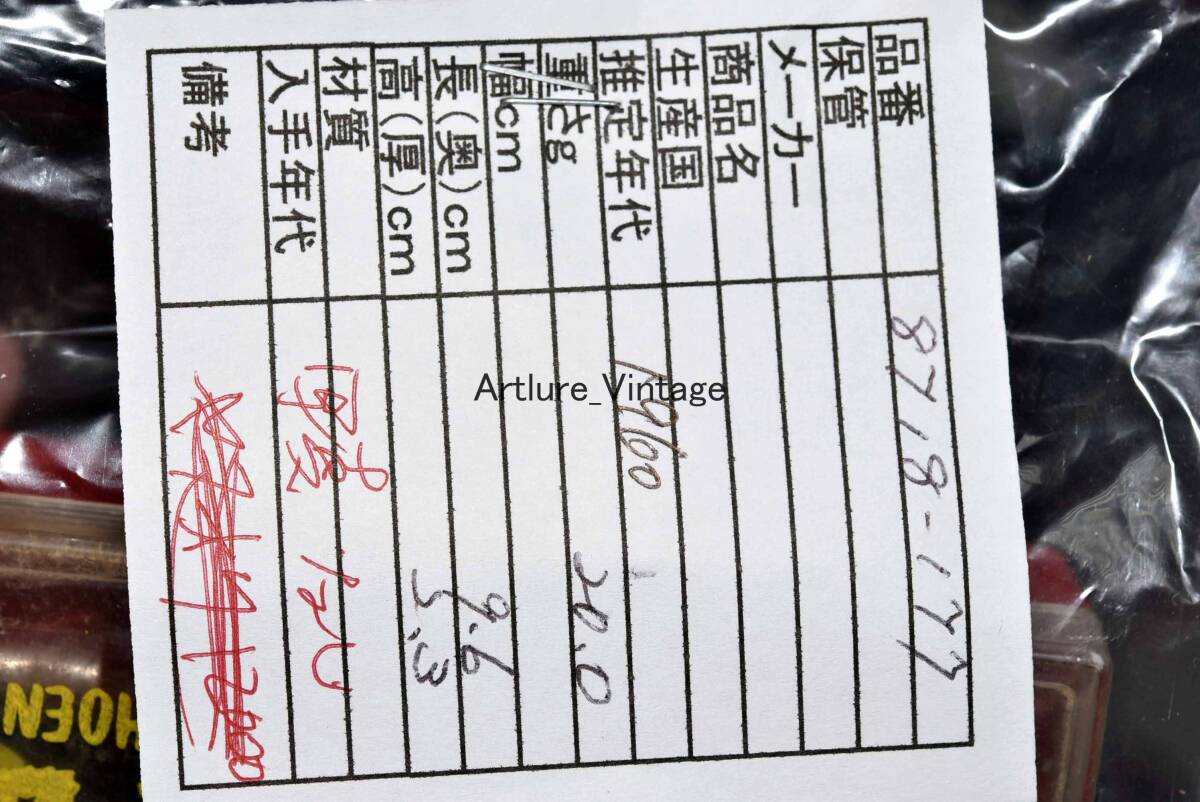 品番 8718-177
保管
メーカー
商品名
生産国
推定年代 1960
重さg 20.0
幅cm
長(奥)cm 9.6
高(厚)cm 5.3
材質
入手年代
備考
Artlure_Vintage